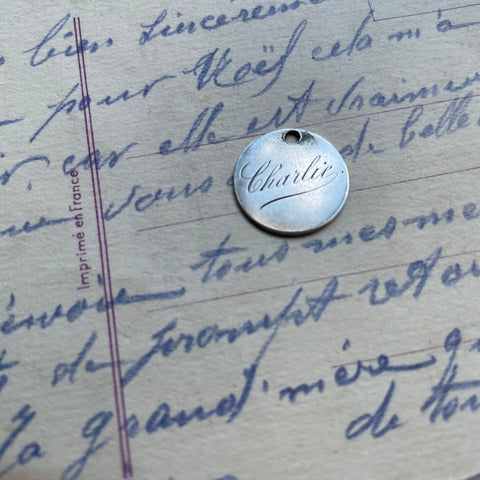 bien sincèrement
pour Noël cela m'a
car elle est vraiment
vous de belle
Charlie.
Imprimé en France
tous mes me
envoie
de prompt retou
grand'mère q
de tou